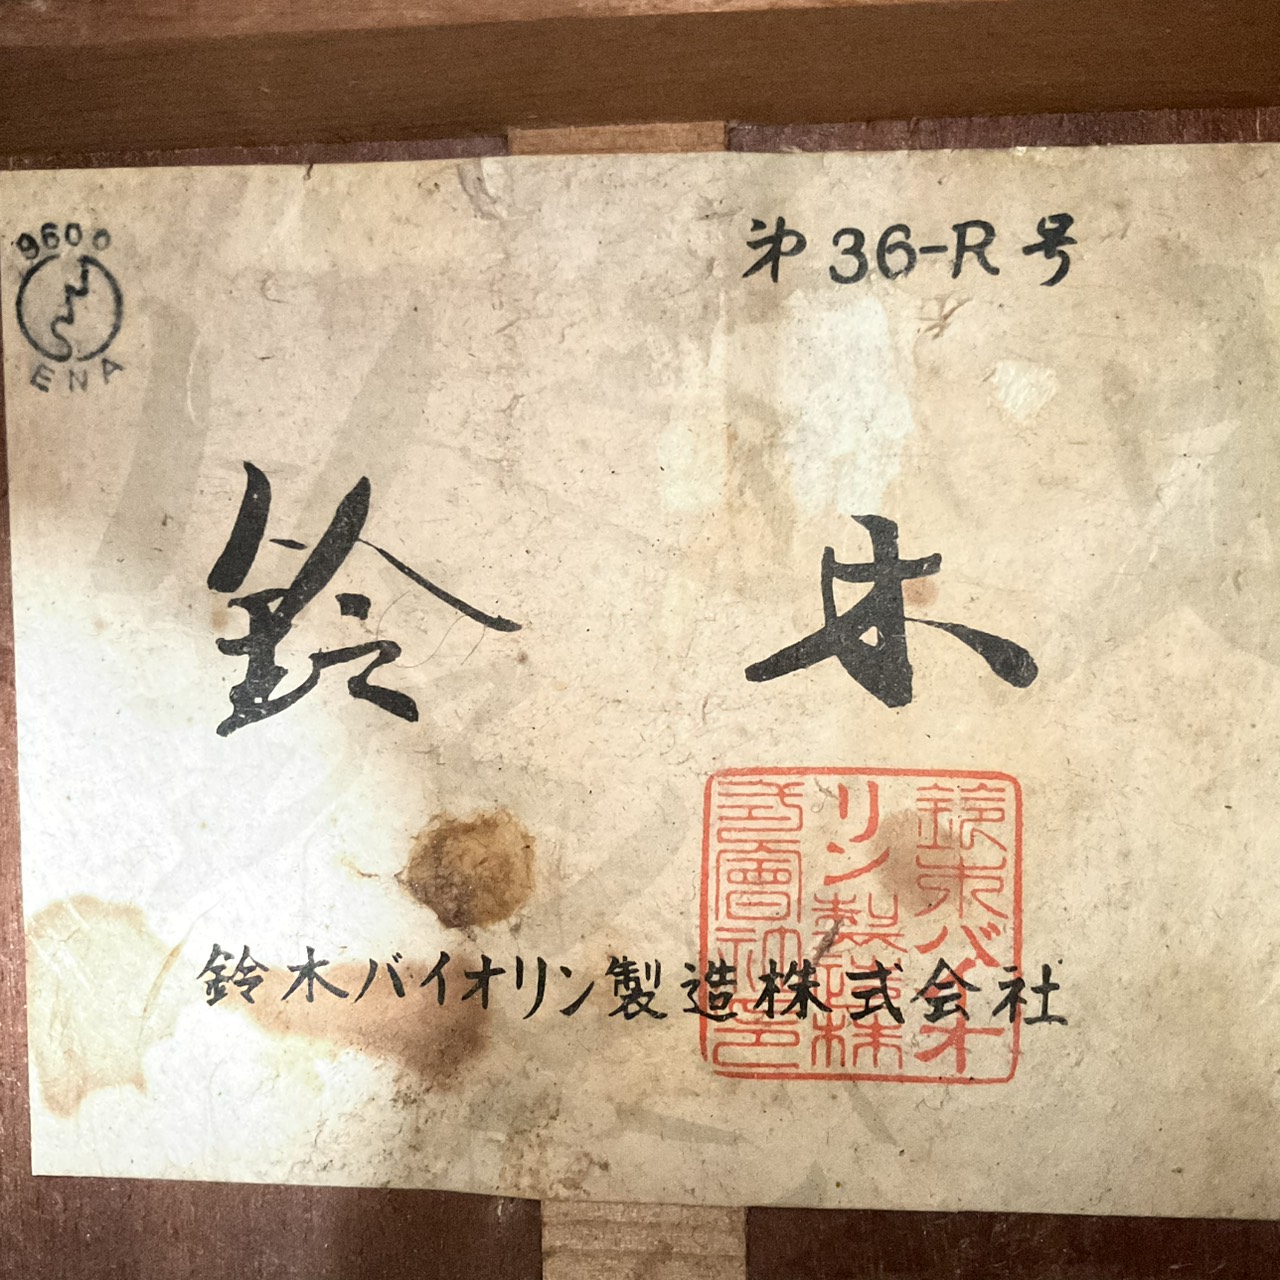 9600
ENA
第36-R号
鈴木
鈴木バイオリン製造株式会社
鈴木バイオ
リン製造株
式會社之印